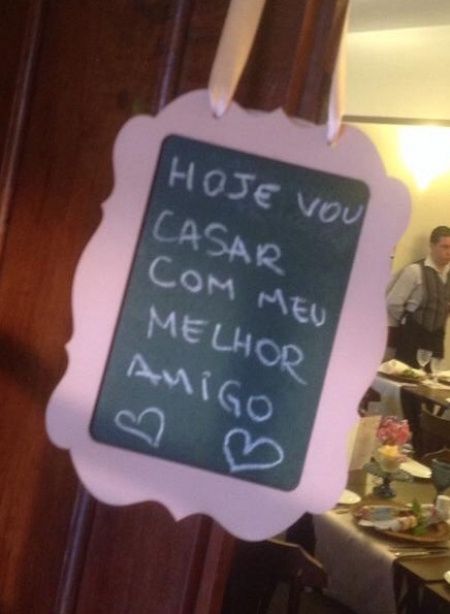 HOJE VOU
CASAR
COM MEU
MELHOR
AMIGO